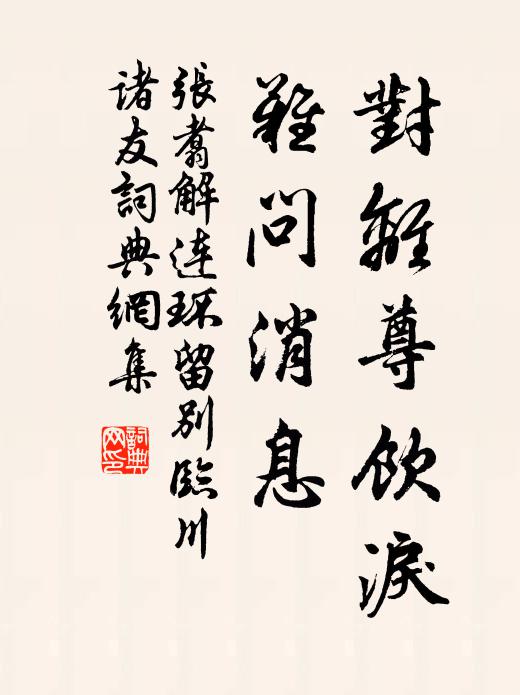 對離尊飲淚
難問消息
張翥解連環留別臨川
諸友詞典網集
詞典
网印